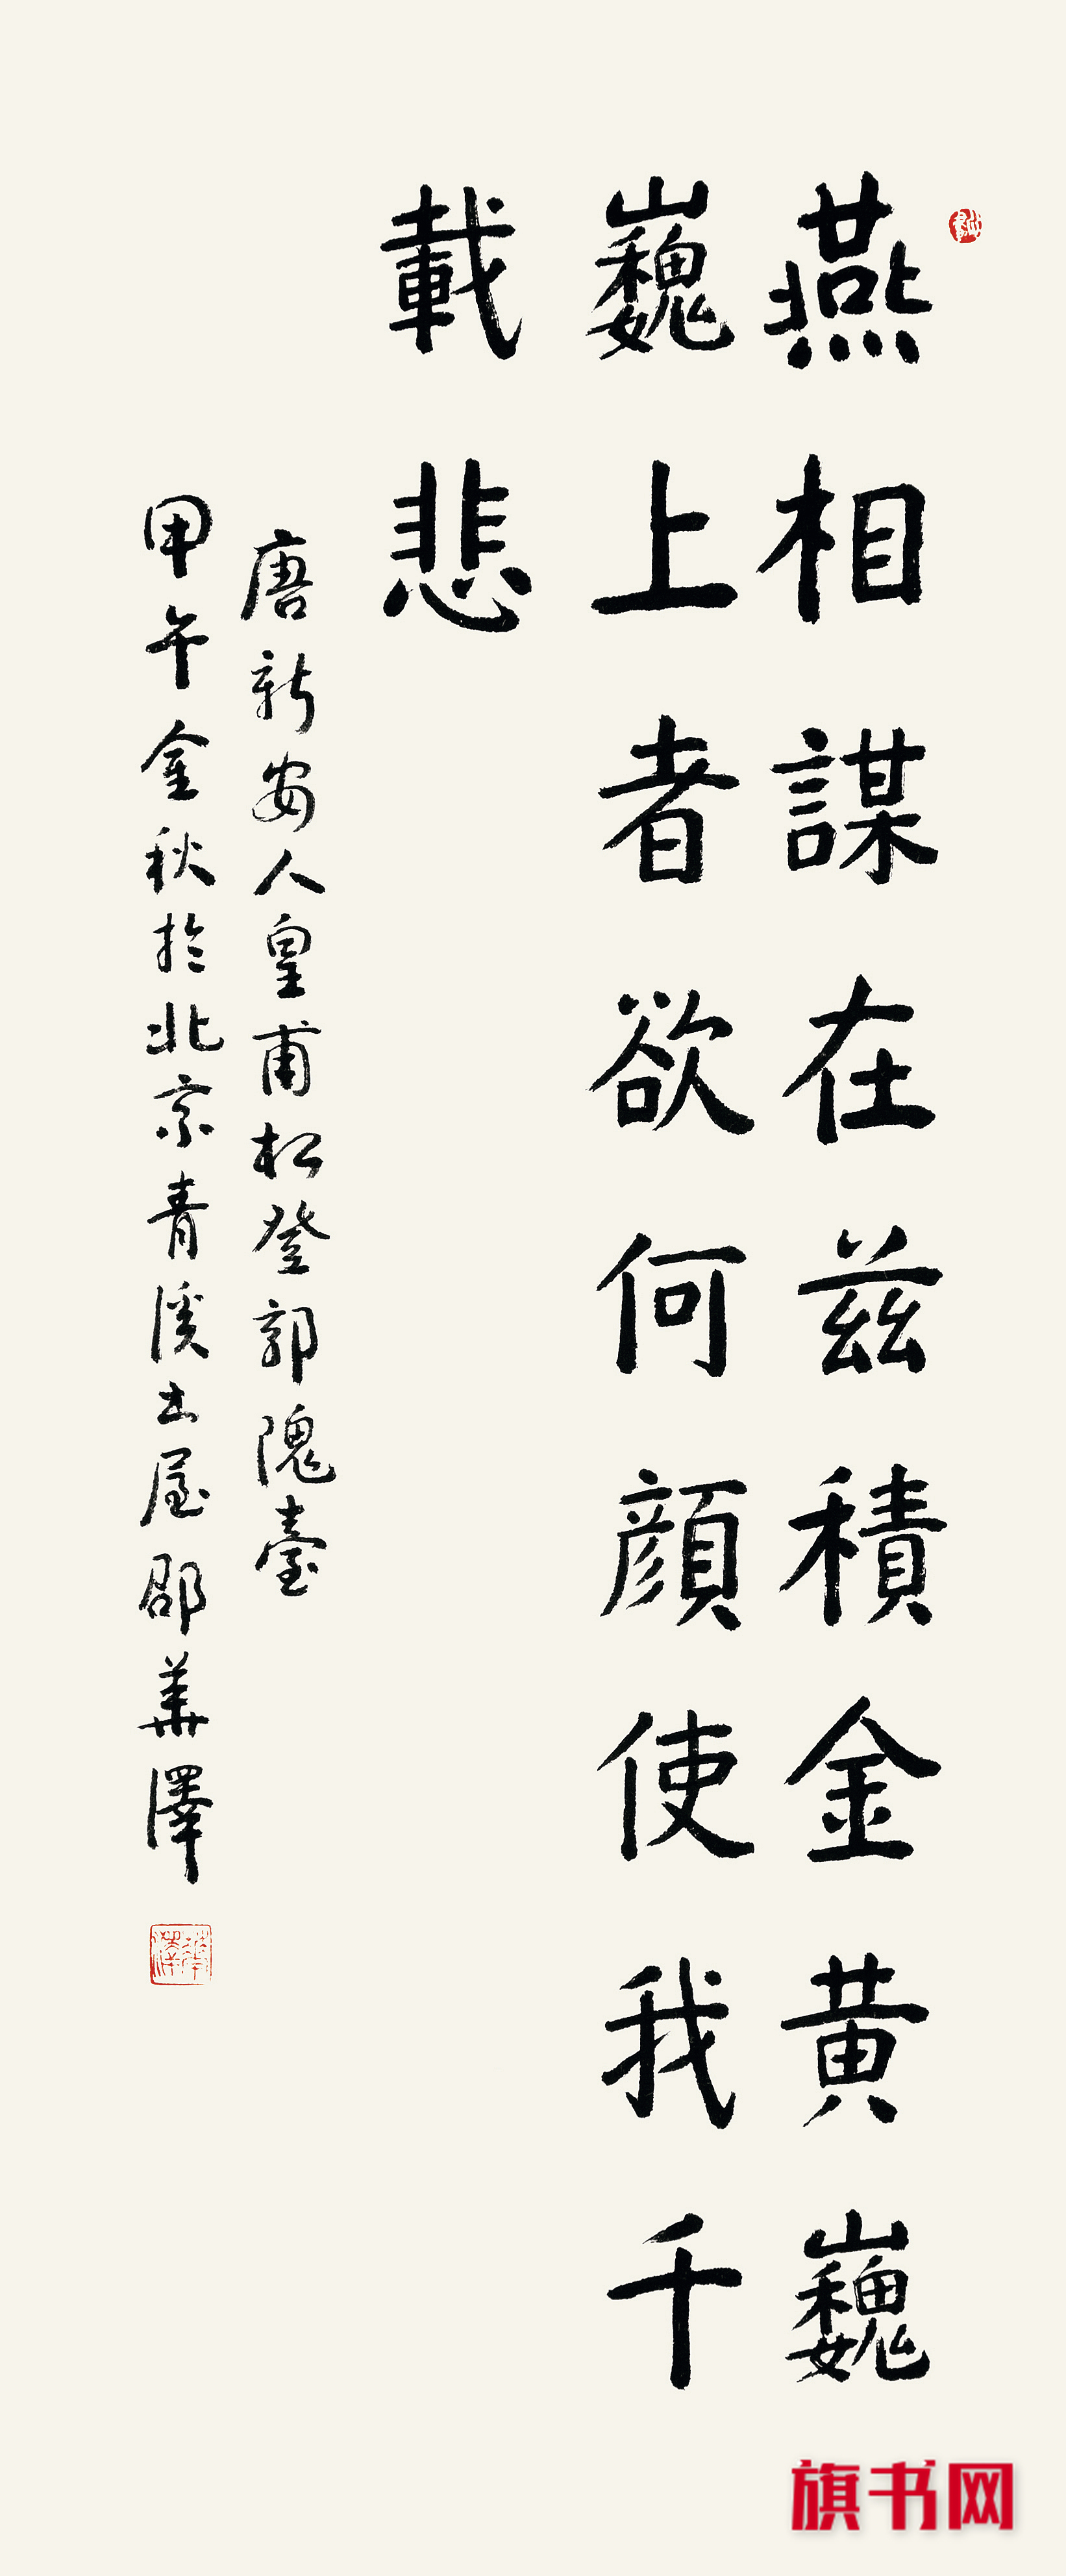 燕相謀在兹積金黄巍
巍上者欲何顔使我千
載悲
唐新安人皇甫松登郭隗臺
甲午金秋於北京青溪土屋邵華澤
華澤
旗书网